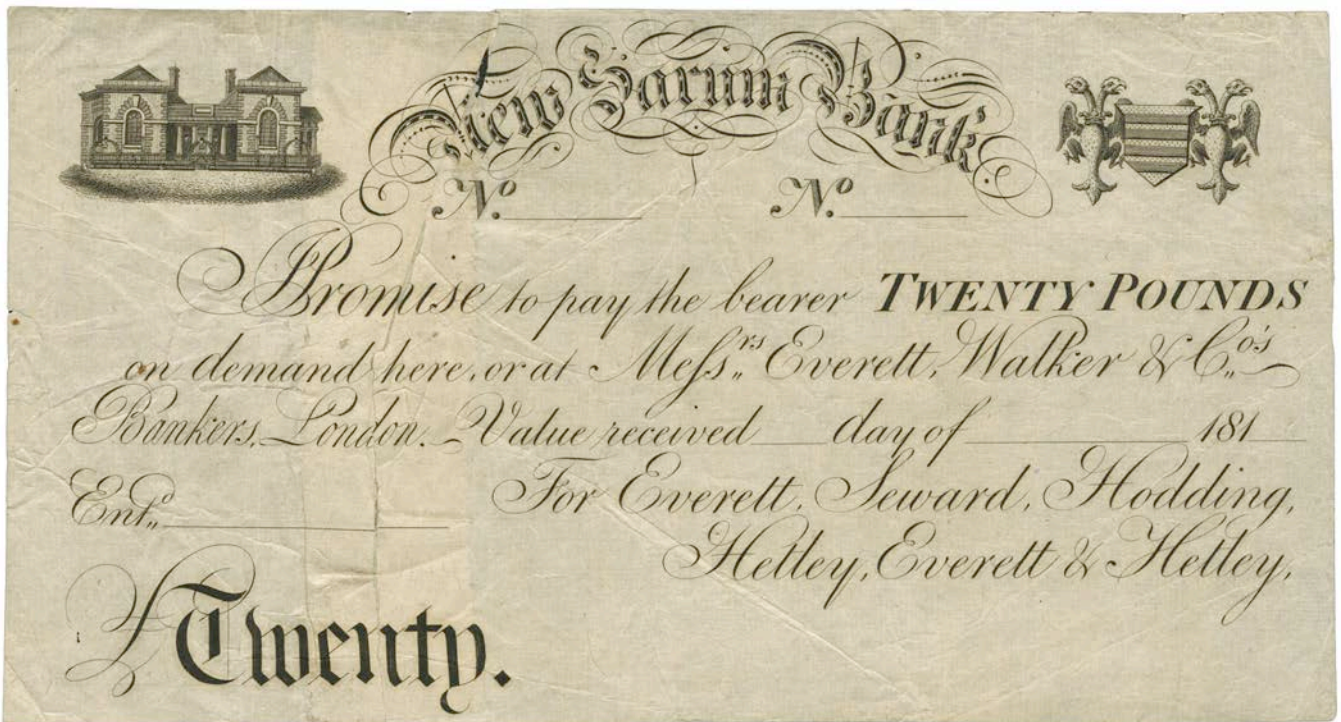 New Sarum Bank
Nº. Nº.
I Promise to pay the bearer TWENTY POUNDS
on demand here, or at Meſsrs,, Everett, Walker & Co's,,
Bankers, London. Value received day of 181
Entd,,
For Everett, Seward, Hodding,
Hetley, Everett & Hetley,
£ Twenty.